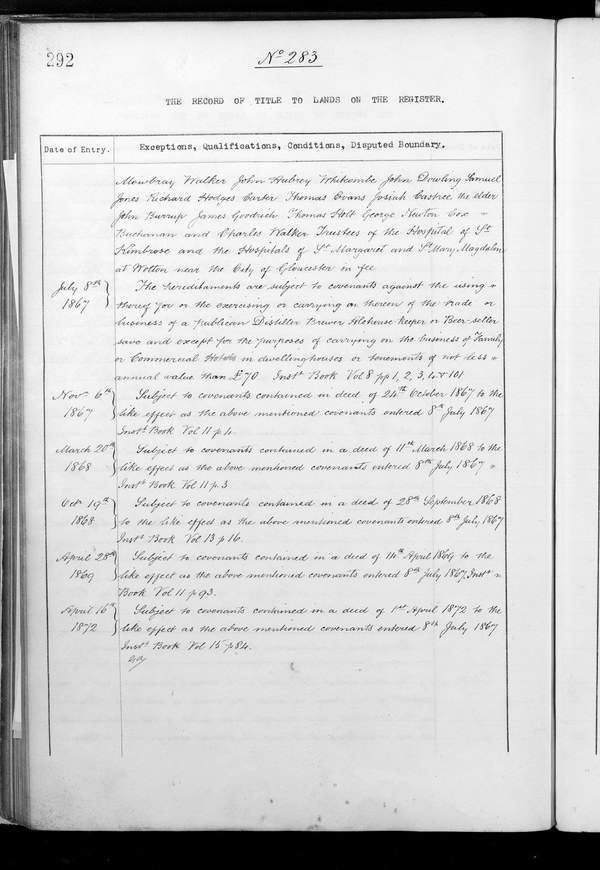 292
No 283
THE RECORD OF TITLE TO LANDS ON THE REGISTER.
Date of Entry.
Exceptions, Qualifications, Conditions, Disputed Boundary.
Mowbray Walker John Aubrey Whitcombe John Dowling Samuel
Jones Richard Hodges Carter Thomas Evans Josiah Castree the elder
John Burrup James Goodrich Thomas Holt George Newton Cox
Buchanan and Charles Walker Trustees of the Hospital of St
Kimbrose and the Hospitals of St Margaret and St Mary Magdalen
at Wotton near the City of Gloucester in fee
July 8th
1867
The hereditaments are subject to covenants against the using
thereof for or the exercising or carrying on thereon of the trade or
business of a publican Distiller Brewer Alehouse-keeper or Beer-seller
save and except for the purposes of carrying on the business of Family
or Commercial Hotels in dwellinghouses or tenements of not less
annual value than £70. Instt Book Vol 8 pp 1, 2, 3, 4 & 101
Novr 6th
1867
Subject to covenants contained in deed of 24th October 1867 to the
like effect as the above mentioned covenants entered 8th July 1867
Instt Book Vol 11 p 4
March 20th
1868
Subject to covenants contained in a deed of 11th March 1868 to the
like effect as the above mentioned covenants entered 8th July 1867
Instt Book Vol 11 p. 3
Octr 19th
1868
Subject to covenants contained in a deed of 28th September 1868
to the like effect as the above mentioned covenants entered 8th July 1867
Instt Book Vol 13 p 16.
April 28th
1869
Subject to covenants contained in a deed of 14th April 1869 to the
like effect as the above mentioned covenants entered 8th July 1867. Instt
Book Vol 11 p 93.
April 16th
1872
Subject to covenants contained in a deed of 1st April 1872 to the
like effect as the above mentioned covenants entered 8th July 1867
Instt Book Vol 15 p 84.